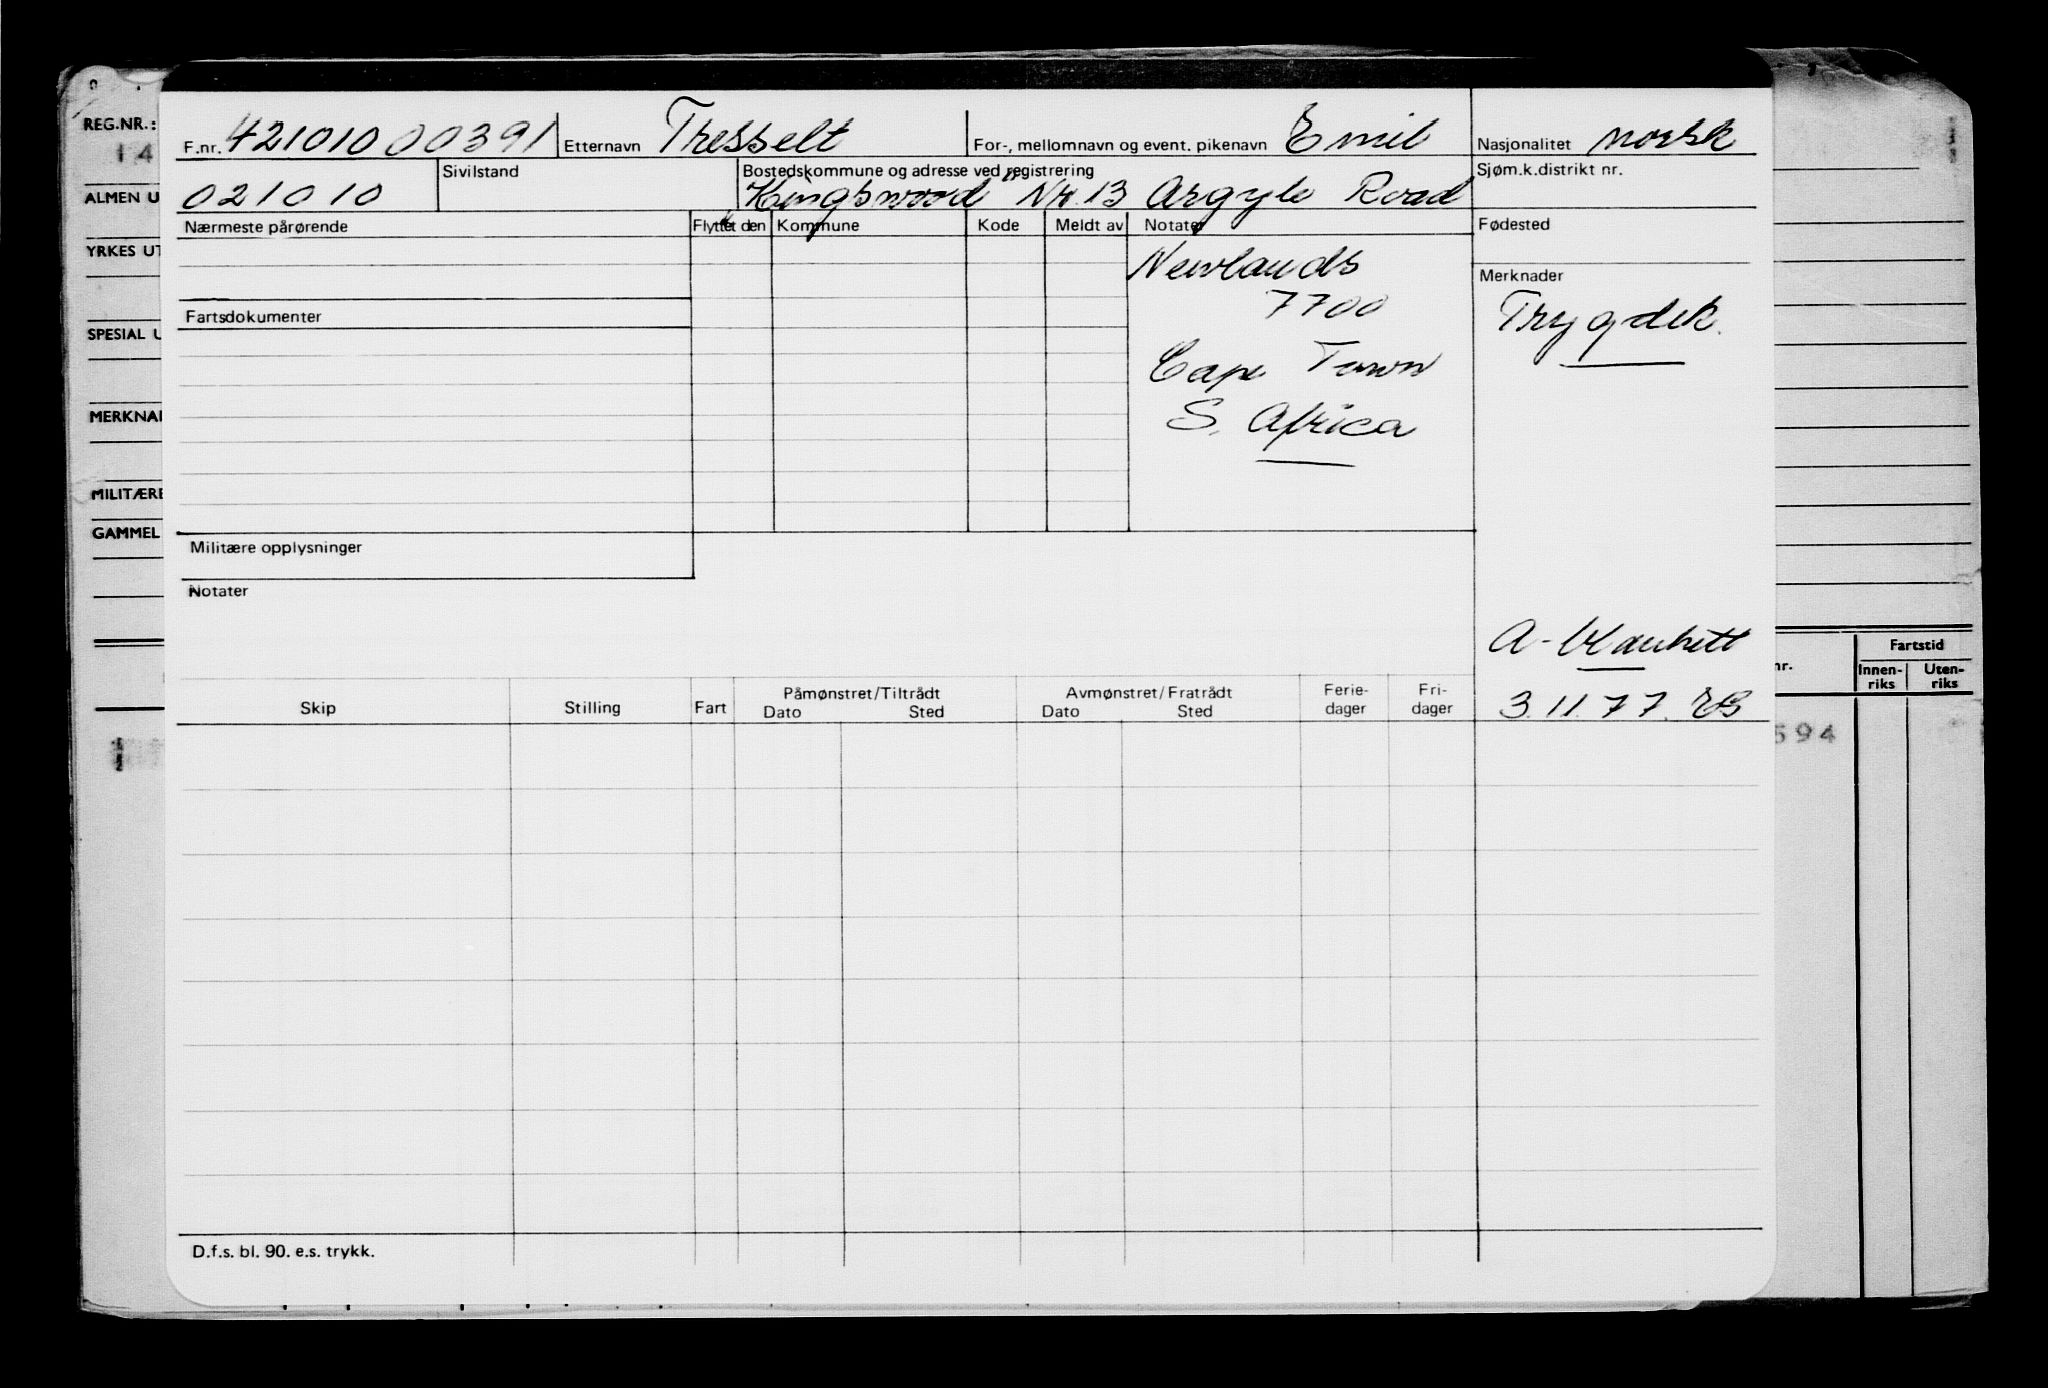 REG.NR.:
14
ALMEN U
YRKES UT
SPESIAL U
MERKNAD
MILITÆRE
GAMMEL
F.nr. 42101000391 Etternavn Tresselt For-, mellomnavn og event. pikenavn Emil Nasjonalitet norsk
021010 Sivilstand Bostedskommune og adresse ved registrering Sjøm.k.distrikt nr.
"Kingswood" Nr. 13 Argyle Road
Nærmeste pårørende Flyttet den Kommune Kode Meldt av Notater Fødested
Newlands
7700
Cape Town
S. Africa
Merknader
Trygdek.
Fartsdokumenter
Militære opplysninger
Notater
A-blankett
3.11.77.
Skip Stilling Fart Påmønstret/Tiltrådt Avmønstret/Fratrådt Ferie-dager Fri-dager
Dato Sted Dato Sted
nr. Fartstid
Innen-riks Uten-riks
594
D.f.s. bl. 90. e.s. trykk.